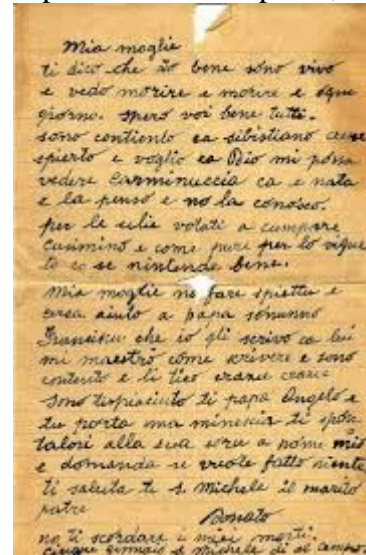 Mia moglie
ti dico che io bene sono vivo
e vedo morire e morire e ogne
giorno. spero voi bene tutti.
sono contiento ca sibistiano aeve
spierto e voglio ca Dio mi possa
vedere Carminuccia ca e nata
e la penso e no la conosco.
per le ulie votati a cumpare
Cusimino e come pure per lo vigne
to ca se nintende bene.
Mia moglie no fare spiettu e
cerca aiuto a papa sonunno
Franciscu che io gli scrivo ca lui
mi maestrò come scrivere e sono
contento e li tico
sono tispiaciuto ti papa Angelo e
tu porta una minescia ti
alla sua a nome mio
e domanda se vuote fatto niente
ti saluta te S. Michele il marito
patre
Donato
no ti scordare i miei morti.
cinque gennaio S. Michele di al campo.